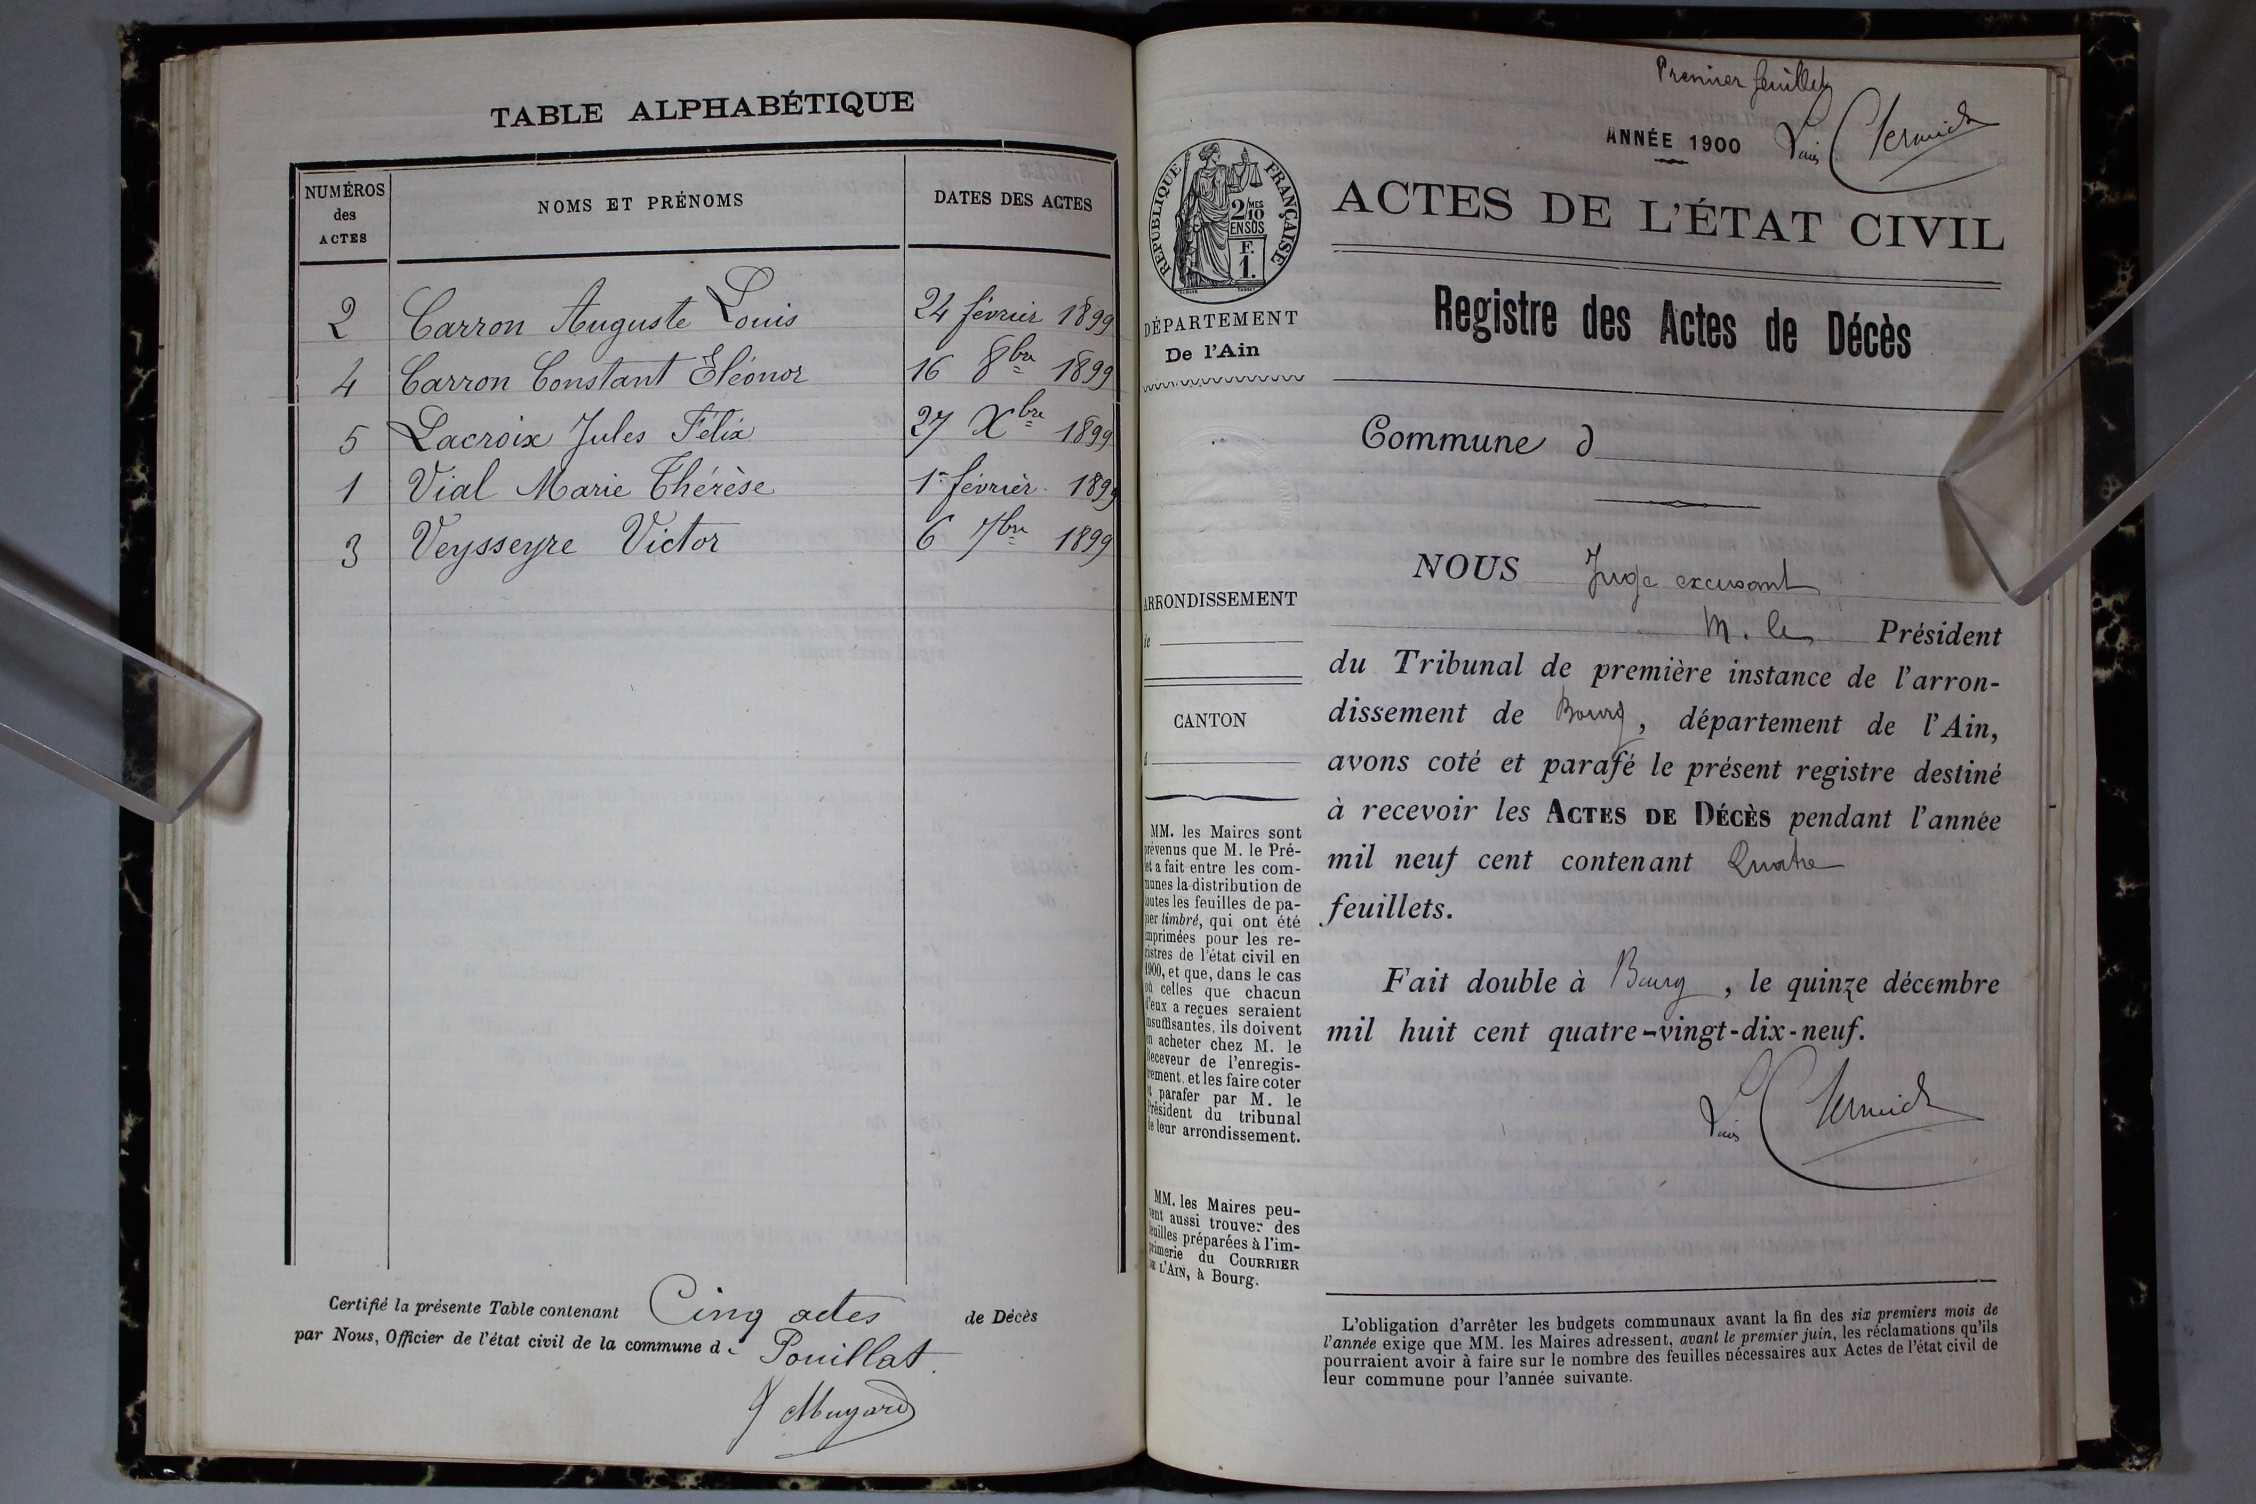 TABLE ALPHABÉTIQUE
NUMÉROS
des
ACTES
NOMS ET PRÉNOMS
DATES DES ACTES
2 Carron Auguste Louis 24 février 1899
4 Carron Constant Eléonor 16 8bre 1899
5 Lacroix Jules Félix 27 Xbre 1899
1 Vial Marie Thérèse 1er février 1899
3 Veysseyre Victor 6 7bre 1899
Certifié la présente Table contenant Cinq actes de Décès
par Nous, Officier de l'état civil de la commune de Pouillat.
Premier feuillet
ANNÉE 1900
ACTES DE L'ÉTAT CIVIL
RÉPUBLIQUE FRANÇAISE
2/10MES
EN SUS
F.
1.
DÉPARTEMENT
De l'Ain
Registre des Actes de Décès
Commune d
ARRONDISSEMENT
de
CANTON
d
MM. les Maires sont
prévenus que M. le Pré-
fet a fait entre les com-
munes la distribution de
toutes les feuilles de pa-
pier timbré, qui ont été
imprimées pour les re-
gistres de l'état civil en
1900, et que, dans le cas
où celles que chacun
d'eux a reçues seraient
insuffisantes, ils doivent
en acheter chez M. le
Receveur de l'enregis-
trement, et les faire coter
et parafer par M. le
Président du tribunal
de leur arrondissement.
MM. les Maires peu-
vent aussi trouver des
feuilles préparées à l'im-
primerie du COURRIER
DE L'AIN, à Bourg.
NOUS Juge excusant
M. le Président
du Tribunal de première instance de l'arron-
dissement de Bourg, département de l'Ain,
avons coté et parafé le présent registre destiné
à recevoir les ACTES DE DÉCÈS pendant l'année
mil neuf cent contenant Quatre
feuillets.
Fait double à Bourg, le quinze décembre
mil huit cent quatre-vingt-dix-neuf.
L'obligation d'arrêter les budgets communaux avant la fin des six premiers mois de
l'année exige que MM. les Maires adressent, avant le premier juin, les réclamations qu'ils
pourraient avoir à faire sur le nombre des feuilles nécessaires aux Actes de l'état civil de
leur commune pour l'année suivante.